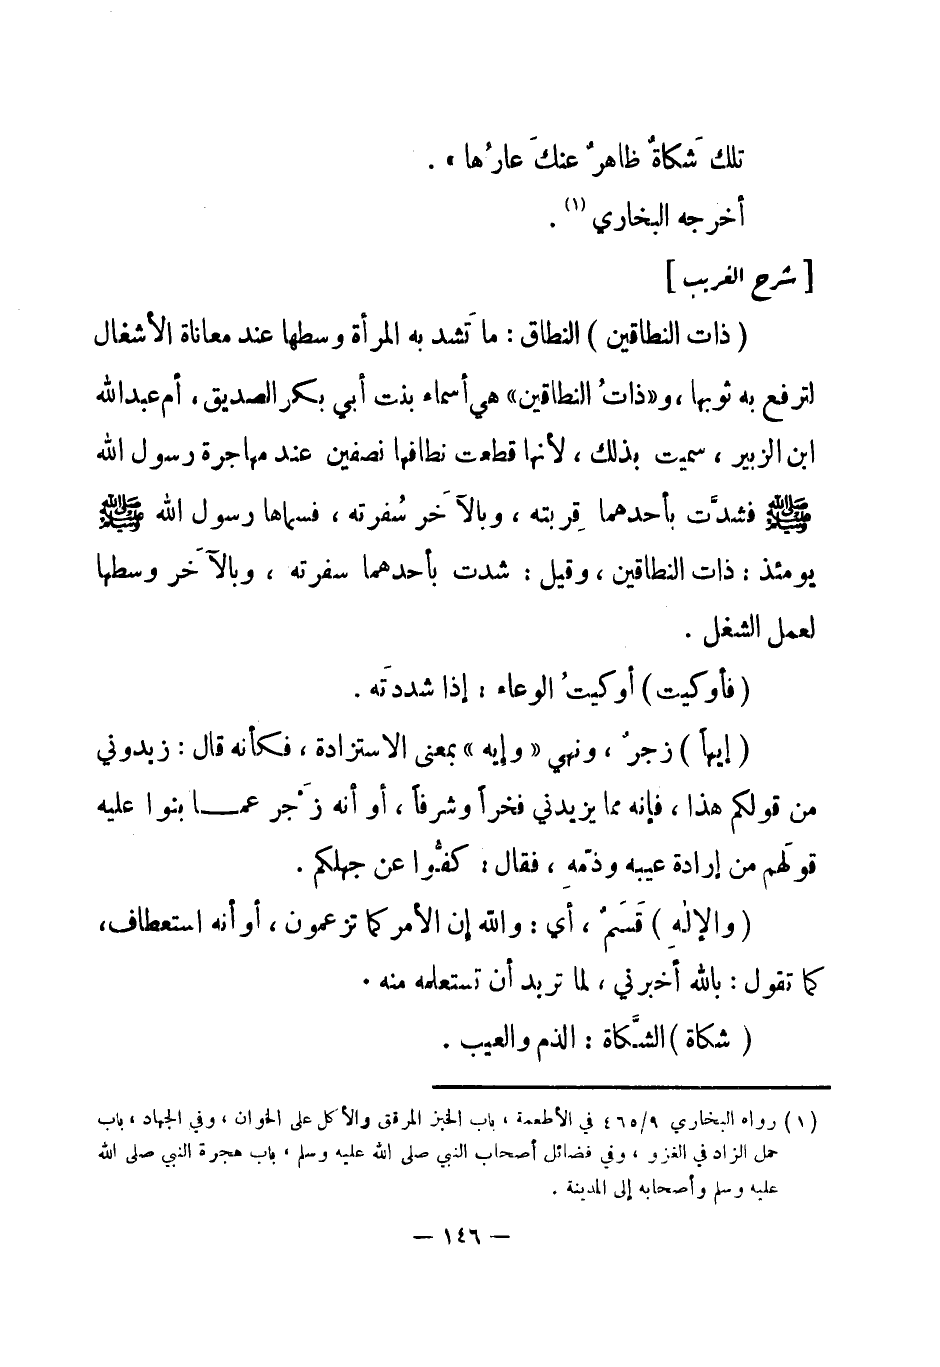 تلك شَكاةٌ ظاهرٌ عنكَ عارُها » .
أخرجه البخاري (١) .
[ شرح الغريب ]
( ذات النطاقين ) النطاق : ما تَشد به المرأة وسطها عند معاناة الأشغال
لترفع به ثوبها ، و«ذاتُ النطاقين» هي أسماء بنت أبي بكر الصديق ، أم عبدالله
ابن الزبير ، سميت بذلك ، لأنها قطعت نطاقها نصفين عند مهاجرة رسول الله
ﷺ فشدَّت بأحدهما قِربته ، وبالآخَر سُفرته ، فسماها رسول الله ﷺ
يومئذ : ذات النطاقين ، وقيل : شدت بأحدهما سفرته ، وبالآخَر وسطها
لعمل الشغل .
( فأوكيت ) أوكيتُ الوعاء : إذا شددتَه .
( إيهاً ) زجرٌ ، ونهي « وإيه » بمعنى الاستزادة ، فكأنه قال : زيدوني
من قولكم هذا ، فإنه مما يزيدني فخراً وشرفاً ، أو أنه زَجْر عمـــا بنوا عليه
قولَهم من إرادة عيبه وذمّهِ ، فقال : كفُّوا عن جهلكم .
( والإلٰهِ ) قَسَمٌ ، أي : والله إن الأمر كما تزعمون ، أو أنه استعطاف،
كما تقول : بالله أخبرني ، لما تريد أن تستعلمه منه .
( شكاة ) الشَّكاة : الذم والعيب .
(١) رواه البخاري ٤٦٥/٩ في الأطعمة ، باب الخبز المرقق والأكل على الخوان ، وفي الجهاد ، باب
حمل الزاد في الغزو ، وفي فضائل أصحاب النبي صلى الله عليه وسلم ، باب هجرة النبي صلى الله
عليه وسلم وأصحابه إلى المدينة .
— ١٤٦ —